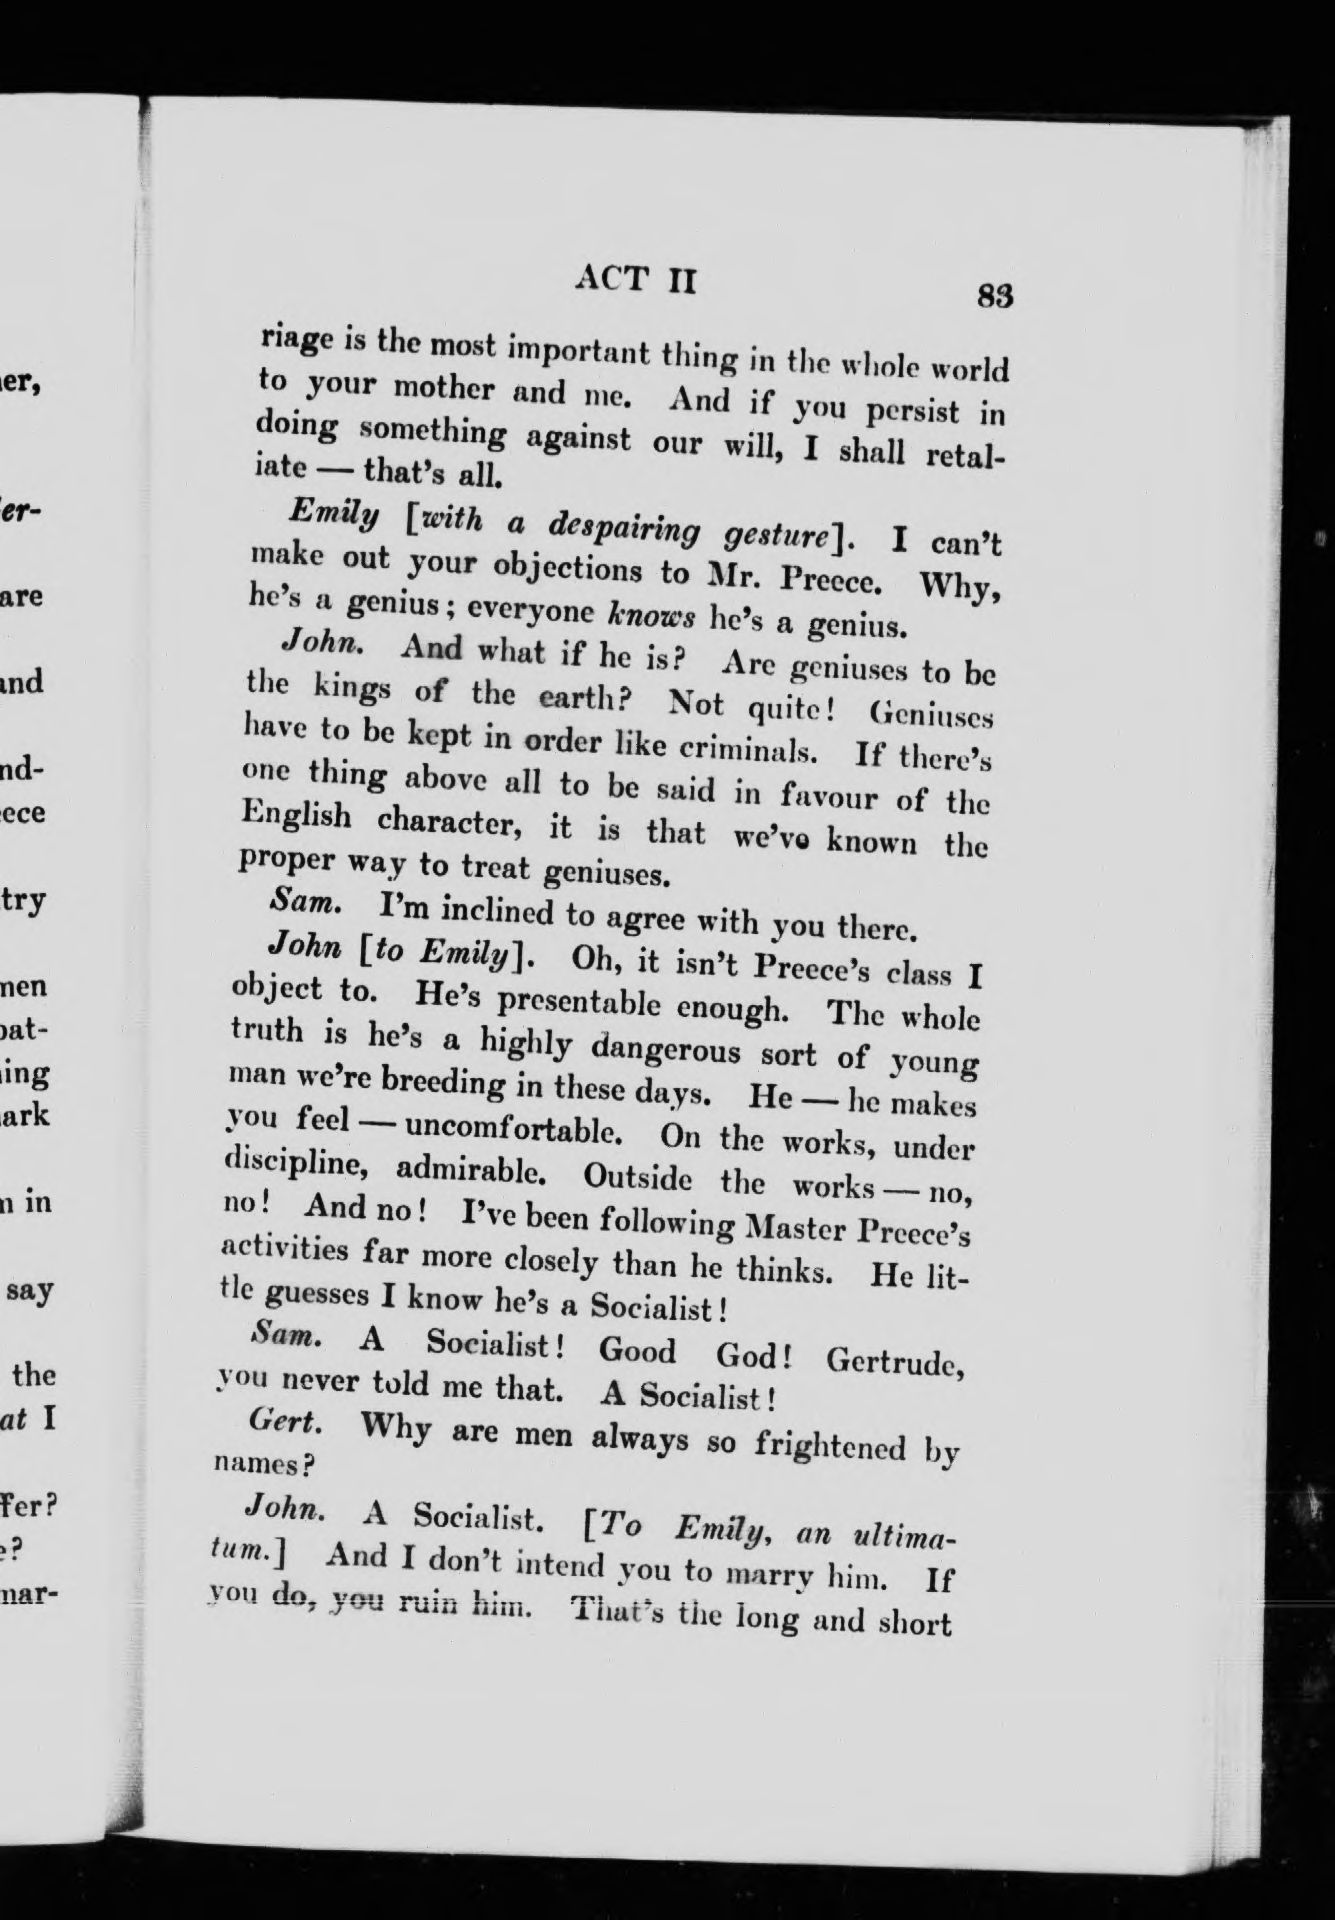 ACT II 83
riage is the most important thing in the whole world
to your mother and me. And if you persist in
doing something against our will, I shall retal-
iate — that's all.
Emily [with a despairing gesture]. I can't
make out your objections to Mr. Preece. Why,
he's a genius; everyone knows he's a genius.
John. And what if he is? Are geniuses to be
the kings of the earth? Not quite! Geniuses
have to be kept in order like criminals. If there's
one thing above all to be said in favour of the
English character, it is that we've known the
proper way to treat geniuses.
Sam. I'm inclined to agree with you there.
John [to Emily]. Oh, it isn't Preece's class I
object to. He's presentable enough. The whole
truth is he's a highly dangerous sort of young
man we're breeding in these days. He — he makes
you feel — uncomfortable. On the works, under
discipline, admirable. Outside the works — no,
no! And no! I've been following Master Preece's
activities far more closely than he thinks. He lit-
tle guesses I know he's a Socialist!
Sam. A Socialist! Good God! Gertrude,
you never told me that. A Socialist!
Gert. Why are men always so frightened by
names?
John. A Socialist. [To Emily, an ultima-
tum.] And I don't intend you to marry him. If
you do, you ruin him. That's the long and short